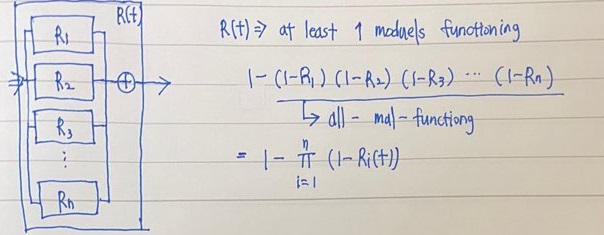 R(t)
R1
R2
R3
⋮
Rn
R(t) ⇒ at least 1 moduels functioning
1 - (1-R1) (1-R2) (1-R3) ... (1-Rn)
↳ all - mal - functiong
= 1 - n π i=1 (1-Ri(t))